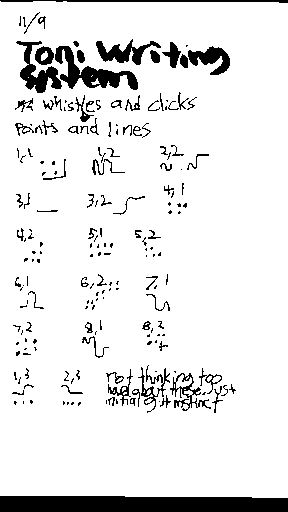 11/9
Toni Writing
System
whistles and clicks
Points and lines
1,1 1,2 2,2
3,1 3,2 4,1
4,2 5,1 5,2
6,1 6,2 7,1
7,2 8,1 8,2
1,3 2,3 not thinking too
hard about these, just
initial gut instinct